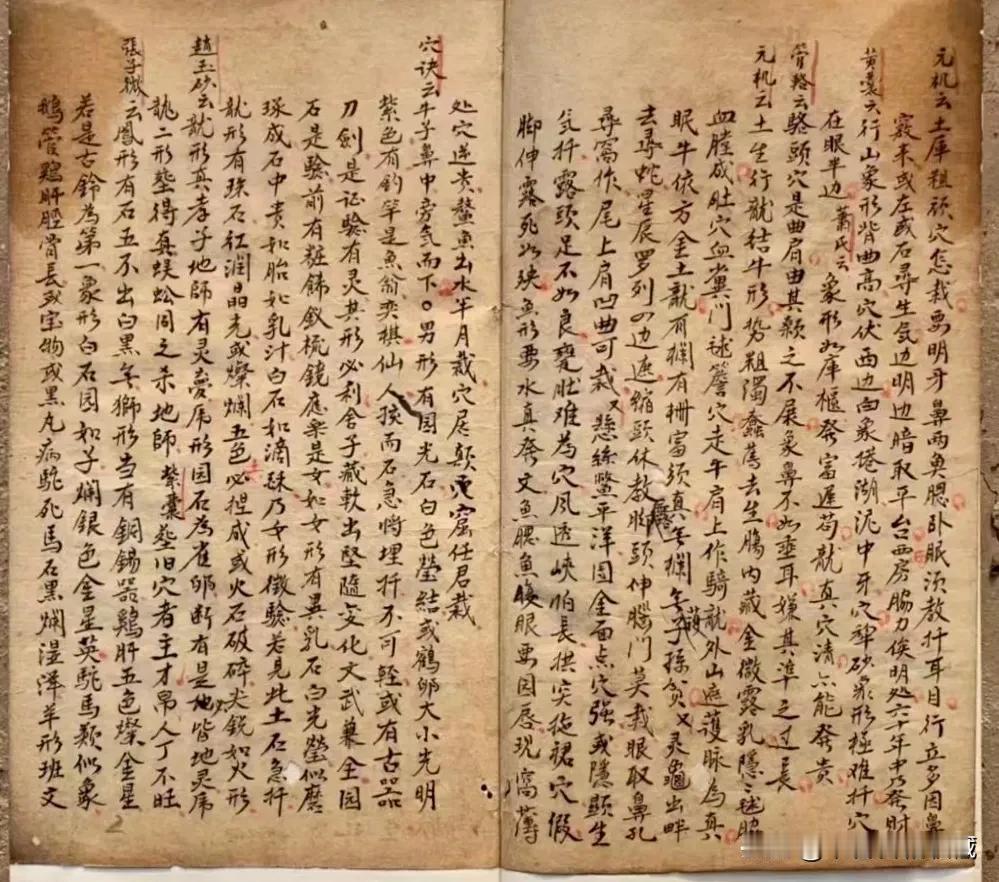 元机云土库粗顽穴怎裁要明牙鼻两奥腮卧眠须教扦耳目行立多因鼻
黄囊云行山象形背曲高穴伏西边白象捲湖泥中牙穴穿砂象形極难扦穴
窾来或左或右尋生气边明边暗取平台西房脇力俟明处六十年中乃發时
在眼半边 蕭氏云 象形如庫櫃發富遲苟龍真穴清亦能發貴
管輅云駱頭穴是曲肩曲其頸之不展象鼻不如垂耳嫌其準之过長
元机云土生行龍結牛形势粗濁蠢鴈去生腸内藏金微露乳隱
血膛成肚穴血糞门毬簷穴走牛肩上作騎龍外山遮護脉為真
眠牛依方金土龍有攔有柵富须真無攔無護子孫貧又灵龜出畔
去尋蛇星辰罗列四边遮縮頭休教脚頭伸腦门莫裁眼取鼻孔
尋窩作尾上肩凹曲可裁又懸絲鱉平洋圆金面点穴强或隱顕生
气扦露頭足不如良甕肚难為穴風透峽怕長拱突拖裙穴假
脚伸露死如殃魚形要水真發文魚腮魚腹眼要因唇現窩薄
处穴遂贵鰲魚出水半月裁穴居颠窟任君裁
穴诀云牛子鼻中旁气而下○男形有园光石白色瑩結或鶴卵大小光明
紫色有釣竿是魚翁奕棋仙人孩而石急將埋扦不可輕或有古器
刀劍是证驗有灵其形必利舍子藏軟出堅隨变化文武兼全园
石是驗前有粧銻釵梳鏡應樂是女如女形有異乳石白光瑩似磨
琢成石中貴如胎如乳汁白石如滴珠乃女形徵驗若見此土石急扦
龍形有珠石红润晶光或燦爛五色必捏成或火石破碎尖銳如火形
趙玉砂云龍形真孝子地師有灵夢虎形园石為崔卵断有是地皆地灵虎
龍二形塟得真蜈蚣同之杀地師 紫囊塟旧穴者主才帛人丁不旺
張子微云鳳形有石五不出白黑無獅形当有銅錫器鷄肝五色燦金星
若是古鈴為第一象形白石园如子爛銀色金星英駝馬類似象
鵝管鷄肝脛骨長或宝物或黑丸病駝死馬石黑爛湿洋羊形班文